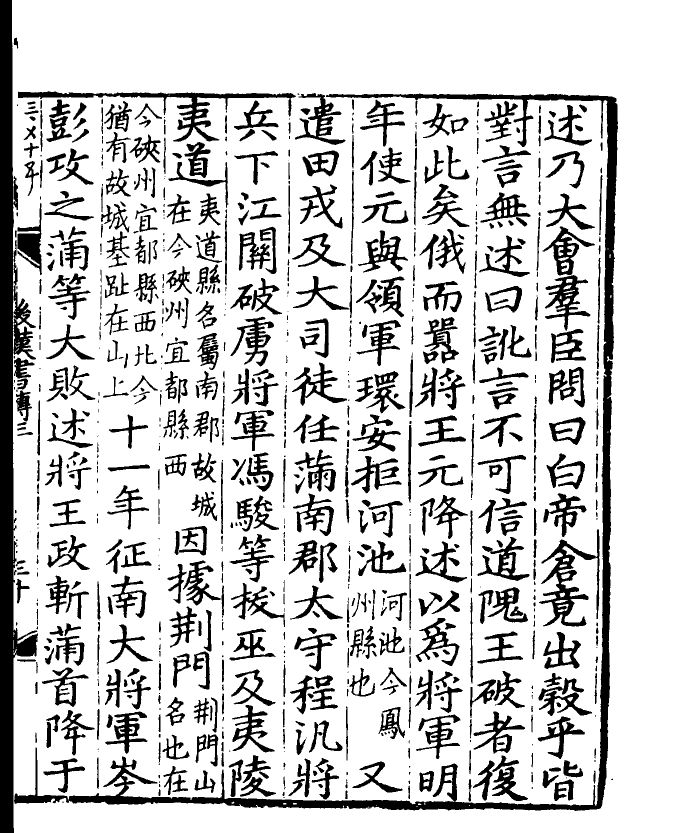 述乃大會羣臣問曰白帝倉竟出穀乎皆
對言無述曰訛言不可信道隗王破者復
如此矣俄而囂將王元降述以爲將軍明
年使元與領軍環安拒河池河池今鳳州縣也又
遣田戎及大司徒任滿南郡太守程汎將
兵下江關破虜將軍馮駿等拔巫及夷陵
夷道夷道縣名屬南郡故城在今硤州宜都縣西因據荆門荆門山名也在
今硤州宜都縣西北今猶有故城基趾在山上十一年征南大將軍岑
彭攻之蒲等大敗述將王政斬蒲首降于
後漢書傳三